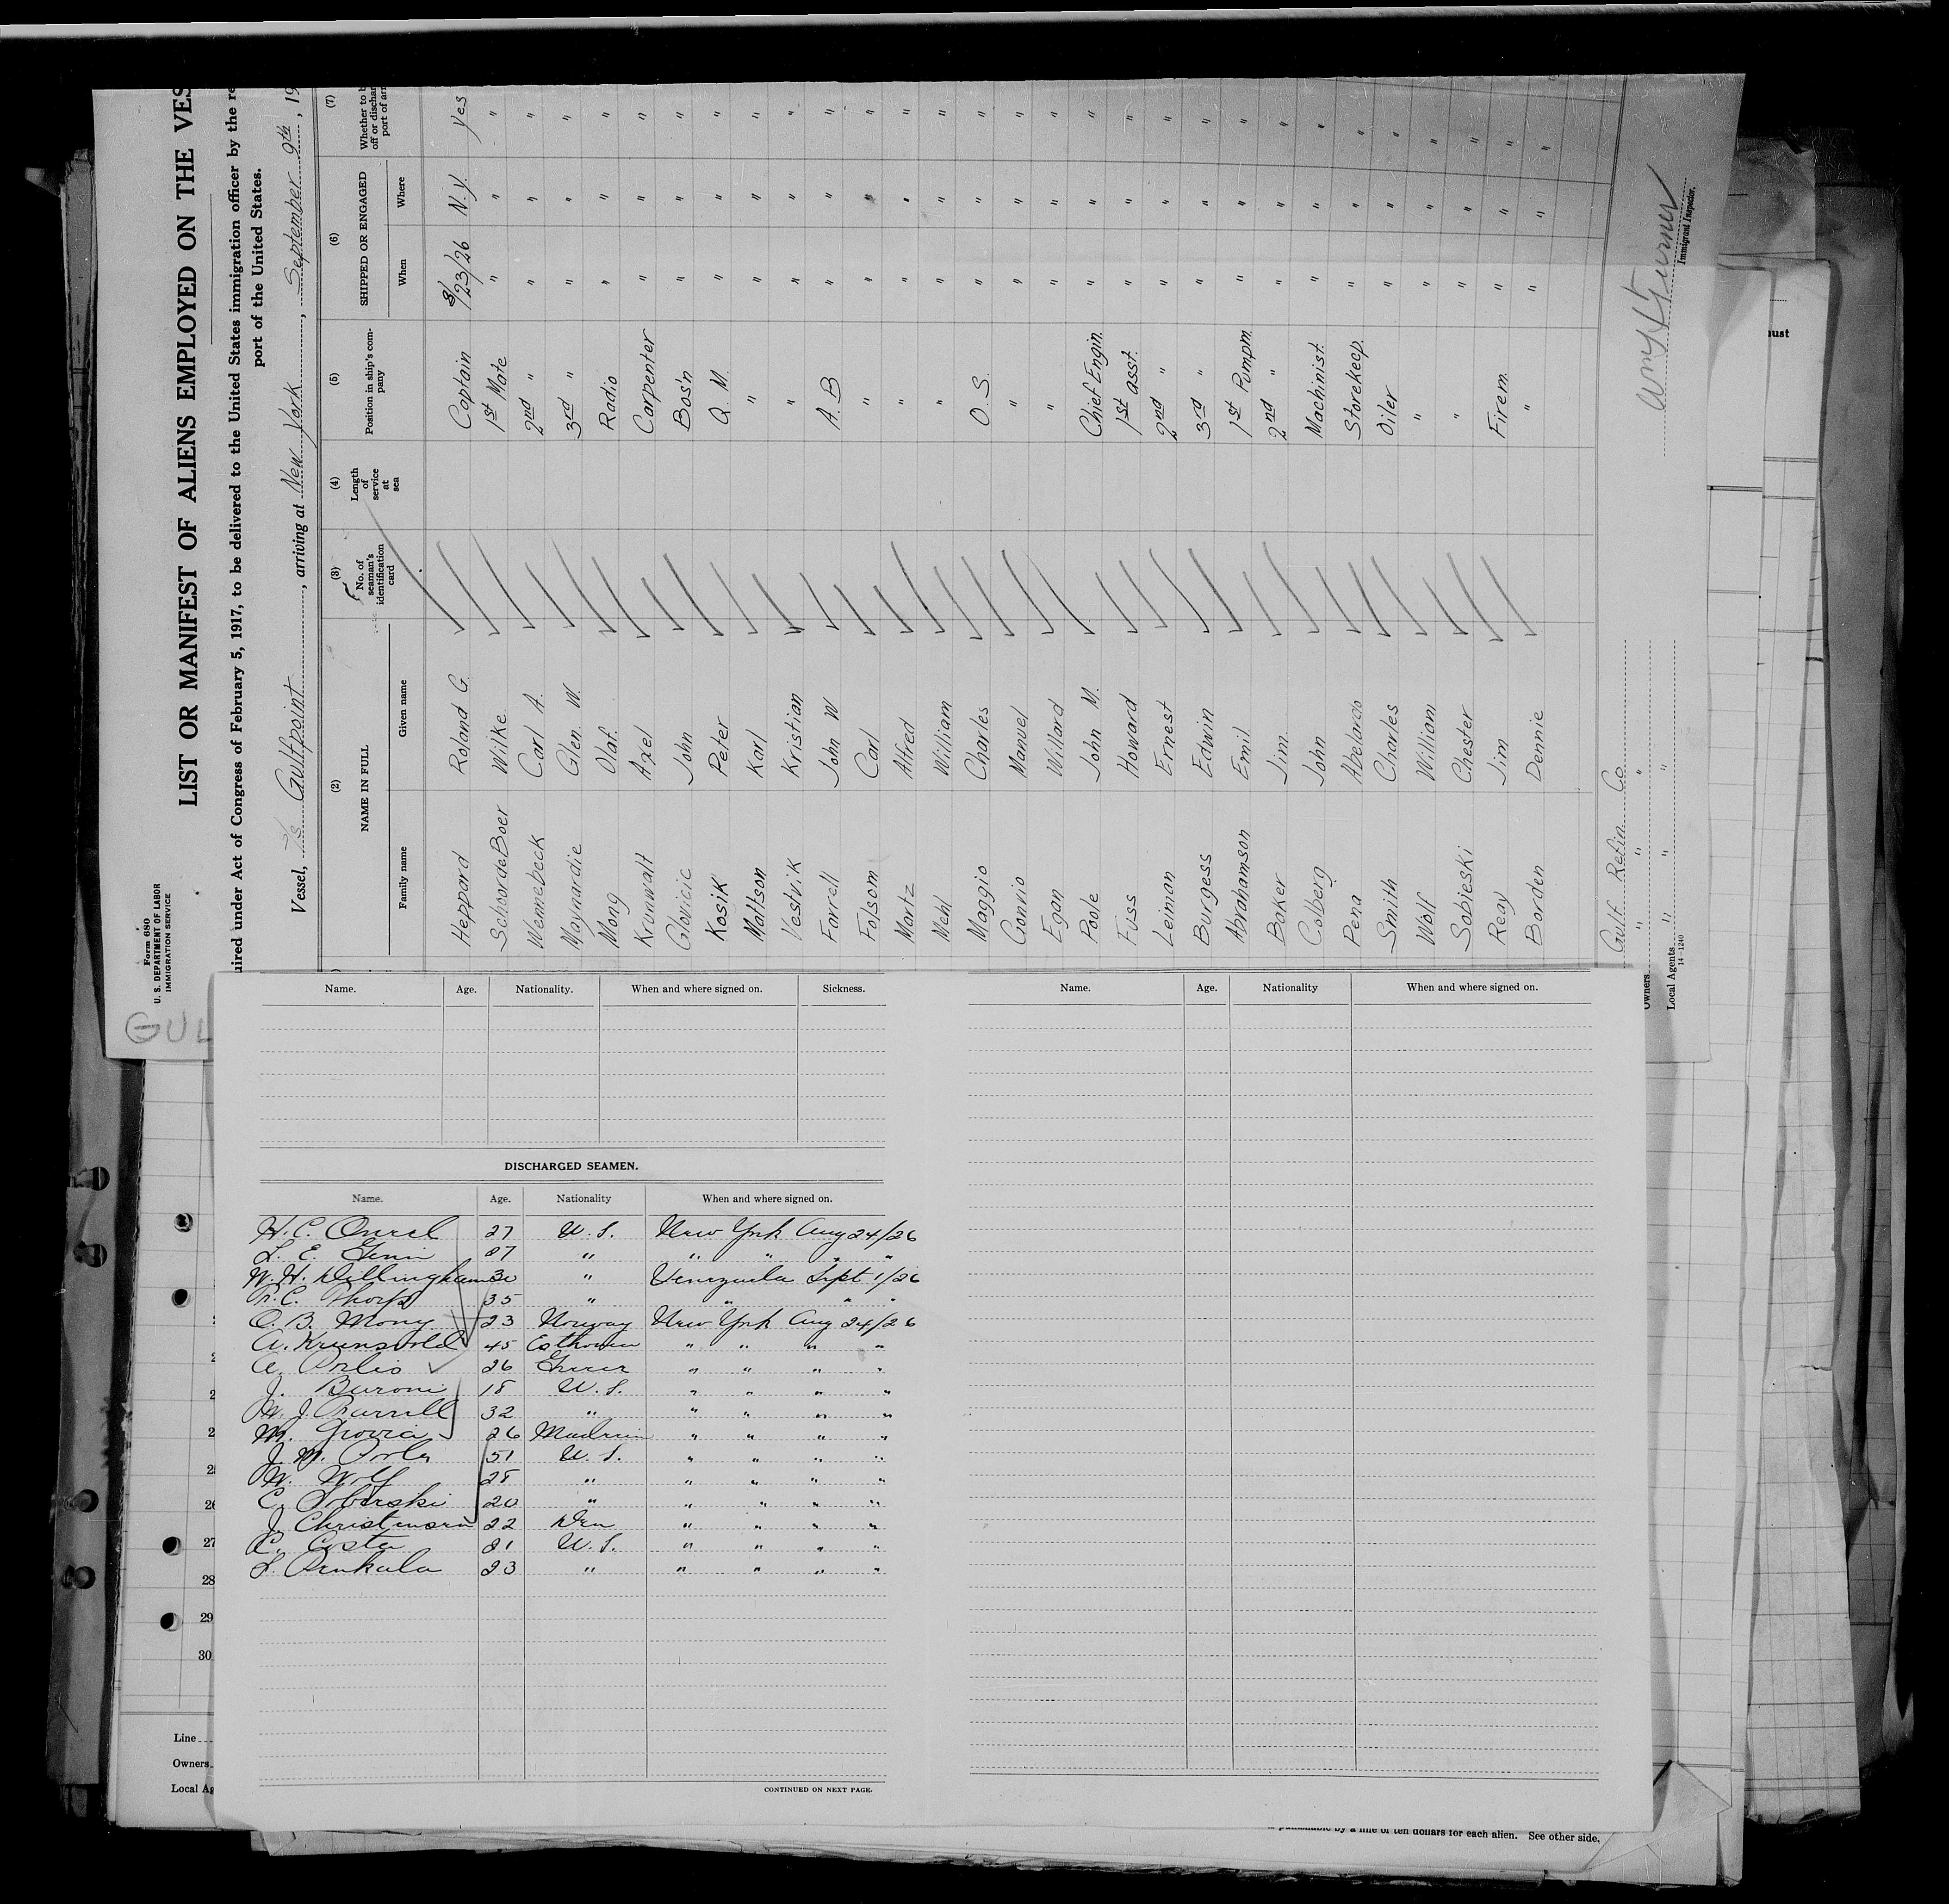 Form 680
U. S. DEPARTMENT OF LABOR
IMMIGRATION SERVICE
LIST OR MANIFEST OF ALIENS EMPLOYED ON THE VES
uired under Act of Congress of February 5, 1917, to be delivered to the United States immigration officer by the re
port of the United States.
Vessel, S/S Gulfpoint, arriving at New York, September 9th, 19
(2) (3) (4) (5) (6) (7)
NAME IN FULL
Family name Given name
No. of seaman's identification card
Length of service at sea
Position in ship's company
SHIPPED OR ENGAGED
When Where
Whether to b
off or dischar
port of arr
Heppard Roland G. Captain 8/23/26 N.Y. Yes
SchordeBoer Wilke 1st Mate " " "
Wennebeck Carl A. 2nd " " " "
Maynardie Glen. W. 3rd " " " "
Mong Olaf. Radio " " "
Krunwalt Axel Carpenter " " "
Glovicic John Bos'n " " "
Kosik Peter Q. M. " " "
Maltson Karl " " " "
Vestvik Kristian " " " "
Farrell John W A. B " " "
Folsom Carl " " " "
Martz Alfred " " " "
Wehl William " " " "
Maggio Charles O. S. " " "
Gonvio Manuel " " " "
Egan Willard " " " "
Poole John M. Chief Engin. " " "
Fuss Howard 1st asst. " " "
Leiman Ernest 2nd " " " "
Burgess Edwin 3rd " " " "
Abrahamson Emil 1st Pumpm. " " "
Baker Jim. 2nd " " " "
Colberg John Machinist. " " "
Pena Abelardo Storekeep. " " "
Smith Charles Oiler " " "
Wolf William " " " "
Sobieski Chester " " " "
Reay Jim Firem. " " "
Borden Dennie " " " "
Owners Gulf Refin Co
" " "
Local Agents " " "
14-1240
Immigrant Inspector.
GUL
Name. Age. Nationality. When and where signed on. Sickness.
Name. Age. Nationality When and where signed on.
DISCHARGED SEAMEN.
Name. Age. Nationality When and where signed on.
H. C. 27 U. S. New York Aug 24/26
L. E. 27 " " " " "
W. H. Dillingham 30 " Venezuela Sept 1/26
R. C. Thorp 35 " " " "
O. B. Mong 23 Norway New York Aug 24/26
A. Krunsvold 45 Esthonia " " " "
A. 26 Greece " " " "
J. Buroni 18 U. S. " " " "
W. J. 32 " " " " "
M. 26 " " " "
J. M. 51 U. S. " " " "
W. Wolf 28 " " " " "
C. Sobieski 20 " " " " "
J. Christensen 22 Den " " " "
C. Costa 21 U. S. " " " "
L. 23 " " " " "
CONTINUED ON NEXT PAGE.
26
27
28
29
30
Line
Owners
Local Ag
nust
a fine of ten dollars for each alien. See other side.